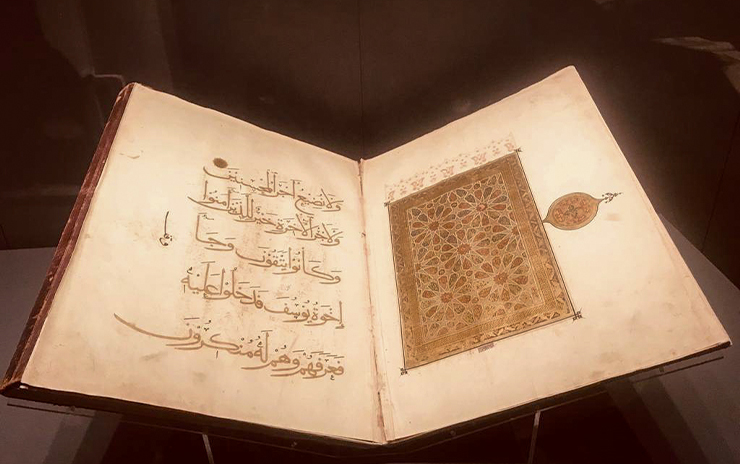 ولا نضيع أجر المحسنين
ولأجر الآخرة خير للذين آمنوا
وكانوا يتقون وجا
إخوة يوسف فدخلوا عليه
فعرفهم وهم له منكرون